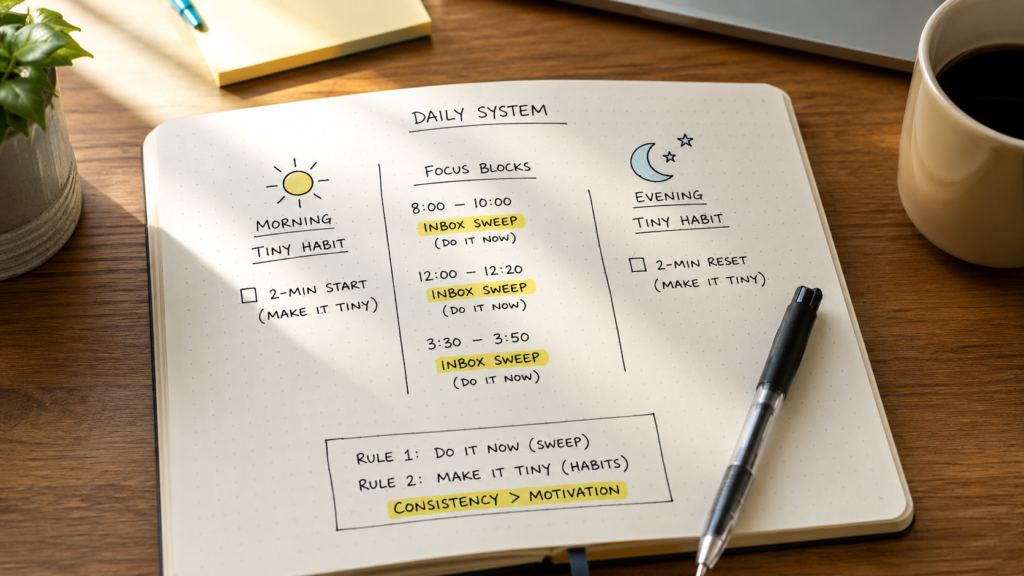 DAILY SYSTEM
MORNING
TINY HABIT
2-MIN START
(MAKE IT TINY)
FOCUS BLOCKS
8:00 – 10:00
INBOX SWEEP
(DO IT NOW)
12:00 – 12:20
INBOX SWEEP
(DO IT NOW)
3:30 – 3:50
INBOX SWEEP
(DO IT NOW)
EVENING
TINY HABIT
2-MIN RESET
(MAKE IT TINY)
RULE 1: DO IT NOW (SWEEP)
RULE 2: MAKE IT TINY (HABITS)
CONSISTENCY > MOTIVATION